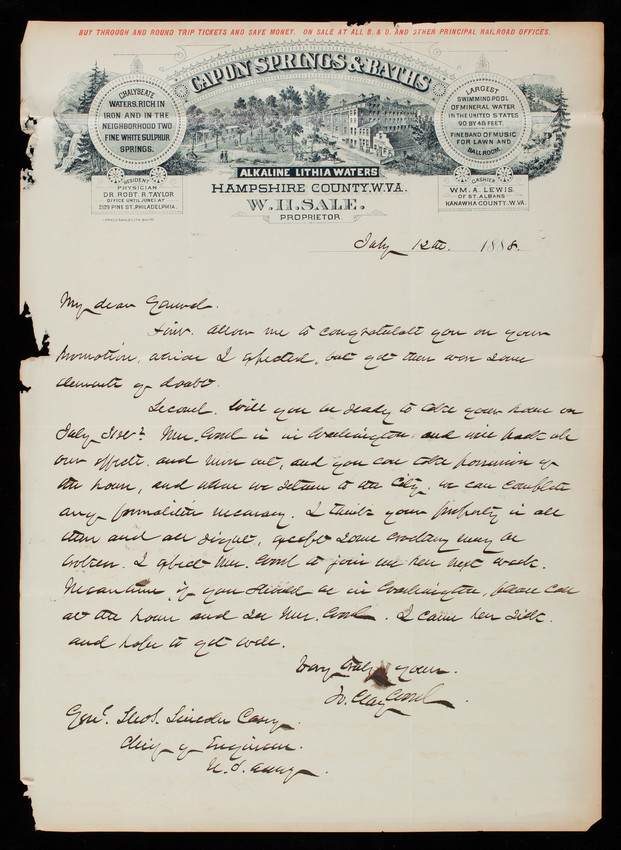 BUY THROUGH AND ROUND TRIP TICKETS AND SAVE MONEY. ON SALE AT ALL B. & O. AND OTHER PRINCIPAL RAILROAD OFFICES.
CAPON SPRINGS & BATHS
CHALYBEATE
WATERS, RICH IN
IRON, AND IN THE
NEIGHBORHOOD TWO
FINE WHITE SULPHUR
SPRINGS.
LARGEST
SWIMMING POOL
OF MINERAL WATER
IN THE UNITED STATES
90 BY 48 FEET.
FINE BAND OF MUSIC
FOR LAWN AND
BALL ROOM.
ALKALINE LITHIA WATERS
RESIDENT
PHYSICIAN
DR. ROBT. R. TAYLOR
OFFICE UNTIL JUNE 1 AT
2129 PINE ST. PHILADELPHIA.
CASHIER
WM. A. LEWIS.
OF ST. ALBANS
KANAWHA COUNTY. W.VA.
HAMPSHIRE COUNTY, W.VA.
W. H. SALE.
PROPRIETOR.
July 12th. 1888.
My dear General.
First. allow me to congratulate you on your
promotion, which I expected, but yet there were some
elements of doubt.
Second. Will you be ready to take your house on
July 21st? Mrs. Wood is in Washington, and will pack all
our effects. and move out, and you can take possession of
the house, and when we return to the City. we can complete
any formalities necessary. I think your property is all
there and all right, except some crockery may be
broken. I expect Mrs. Wood to join me here next week.
Meantime, if you should be in Washington, please call
at the house and see Mrs. Wood. I came here sick.
and hope to get well.
Very truly yours.
W. Clay Wood.
Genl. Thos. Lincoln Casey.
Chief of Engineers.
U.S. Army.